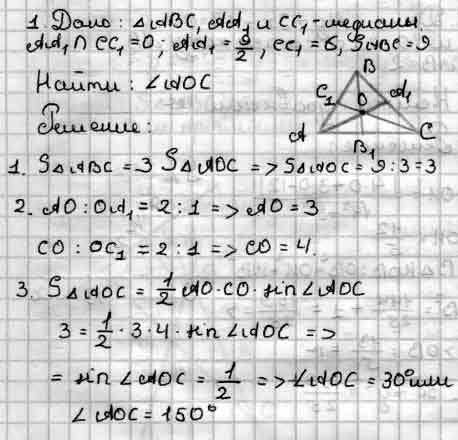 1. Дано: △ABC, AA₁ и CC₁ - медианы
AA₁ ∩ CC₁ = O; AA₁ = 9/2, CC₁ = 6, SABC = 9
Найти: ∠AOC
Решение:
B
C₁ O A₁
A B₁ C
1. S△ABC = 3 S△AOC => S△AOC = 9 : 3 = 3
2. AO : OA₁ = 2 : 1 => AO = 3
CO : OC₁ = 2 : 1 => CO = 4.
3. S△AOC = 1/2 AO · CO · sin ∠AOC
3 = 1/2 · 3 · 4 · sin ∠AOC =>
= sin ∠AOC = 1/2 => ∠AOC = 30° или
∠AOC = 150°